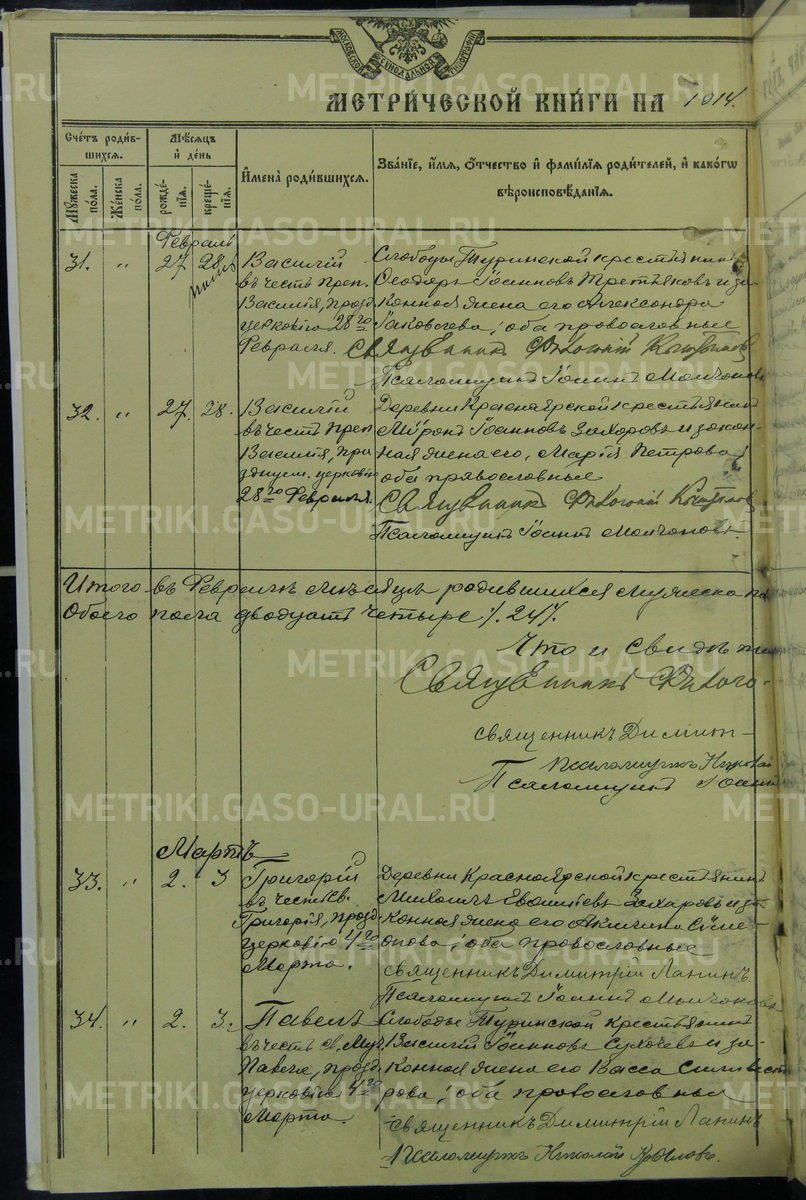 МОСКОВСКОЙ СѴНОДАЛЬНОЙ ТИПОГРАФІИ
МЕТРИ́ЧЕСКОЙ КНИ́ГИ НА 1914.
Сче́тъ роди́вшихсѧ.
Мѹжеска по́ла.
Же́нска по́ла.
Мѣ́сѧцъ и҆ де́нь
рожде́нїѧ.
креще́нїѧ.
И҆мена̀ роди́вшихсѧ.
Зва́нїе, и҆́мѧ, ѻ҆́тчество и҆ фами́лїѧ роди́телей, и҆ како́гѡ
вѣроисповѣ́данїѧ.
Февраль
31. " 27 28
Василій
въ честь преп.
Василія, празд.
церковію 28го
Февраля.
Слободы Туринской крестьянинъ
Ѳеодоръ Іоанновъ Третьяковъ и за-
конная жена его Александра
Іаковлева; оба православные
Священникъ
Псаломщикъ Іоаннъ Молчановъ
32. " 27. 28.
Василій
въ честь преп
Василія, пра
зднуем. церковію
28го Февраля.
Деревни Красноярской крестьянинъ
Мѵронъ Іоанновъ Захаровъ и закон-
ная жена его, Марія Петрова;
оба православные
Священникъ
Псаломщикъ Іоаннъ Молчановъ.
Итого въ Февралѣ мѣсяцѣ родившихся мужеска по
Обоего пола двадцать четыре /. 24/.
Что и свидѣт
Священникъ
священникъ Димит-
псаломщикъ Николай
Псаломщикъ Іоанн
Мартъ
33. " 2. 3
Григорій
въ честь св.
Григорія, празд
церковію 4го
Марта.
Деревни Красноярской крестьянинъ
Михаилъ Захаровъ и за-
конная жена его Акилина Сѵме-
онова; оба православные
священникъ Димитрій Лапинъ.
Псаломщикъ Іоаннъ Молчановъ
34. " 2. 3.
Павелъ
въ честь св. муч.
Павла, празд
церковію 4го
Марта.
Слободы Туринской крестьянинъ
Василій Іоанновъ Сухачевъ и за-
конная жена его Васса Сильвест
рова; оба православные
священникъ Димитрій Лапинъ
псаломщикъ Николай
METRIKI.GASO-URAL.RU